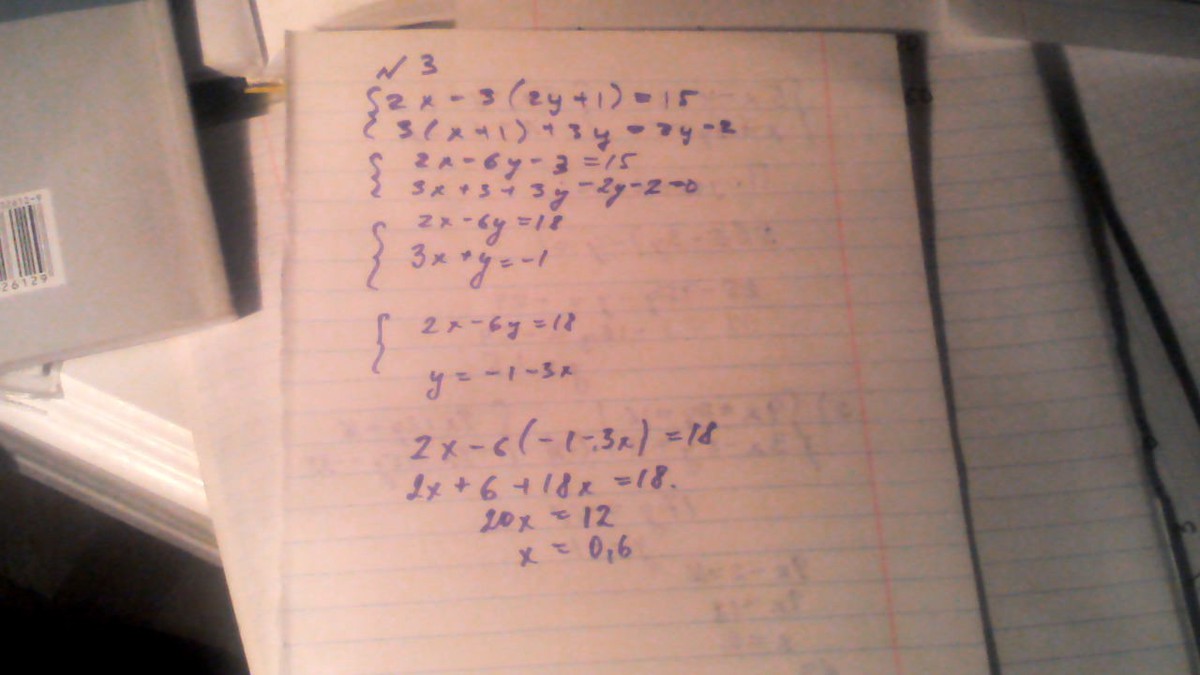 № 3
{2x - 3(2y+1) = 15
3(x+1) + 3y = 2y - 2
{ 2x - 6y - 3 = 15
3x + 3 + 3y - 2y - 2 = 0
{ 2x - 6y = 18
3x + y = -1
{ 2x - 6y = 18
y = -1 - 3x
2x - 6(-1 - 3x) = 18
2x + 6 + 18x = 18.
20x = 12
x = 0,6
26129